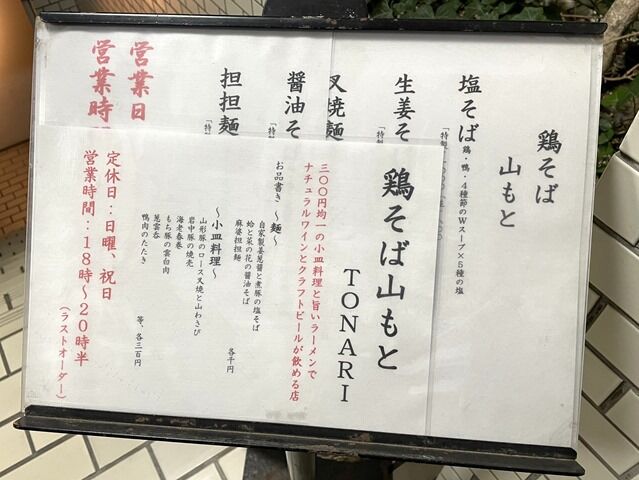 鶏そば
山もと
塩そば 鶏・鴨・4種節のWスープ×5種の塩
「特製
生姜そ
「特製
叉焼麺
醤油そ
「特製
担担麺
「特製
営業日
営業時
鶏そば山もと
TONARI
三〇〇円均一の小皿料理と旨いラーメンで
ナチュラルワインとクラフトビールが飲める店
お品書き ～麺～
自家製姜葱醤と煮豚の塩そば
蛤と菜の花の醤油そば
麻婆担担麺
各千円
～小皿料理～
山形豚のロース叉焼と山わさび
岩中豚の焼売
海老春巻
もち豚の雲白肉
葱雲呑
鴨肉のたたき
等、各三百円
定休日：日曜、祝日
営業時間：18時～20時半
（ラストオーダー）